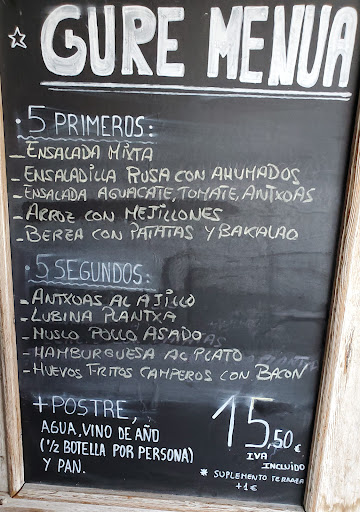 ☆ GURE MENUA
5 PRIMEROS:
- ENSALADA MIXTA
- ENSALADILLA RUSA CON AHUMADOS
- ENSALADA AGUACATE, TOMATE, ANTXOAS
- ARROZ CON MEJILLONES
- BERZA CON PATATAS Y BAKALAO
5 SEGUNDOS:
- ANTXOAS AL AJILLO
- LUBINA PLANTXA
- MUSLO POLLO ASADO
- HAMBURGUESA AL PLATO
- HUEVOS FRITOS CAMPEROS CON BACON
+ POSTRE,
AGUA, VINO DE AÑO
(1/2 BOTELLA POR PERSONA)
Y PAN.
15,50€
IVA
INCLUIDO
* SUPLEMENTO TERRAZA
+1€